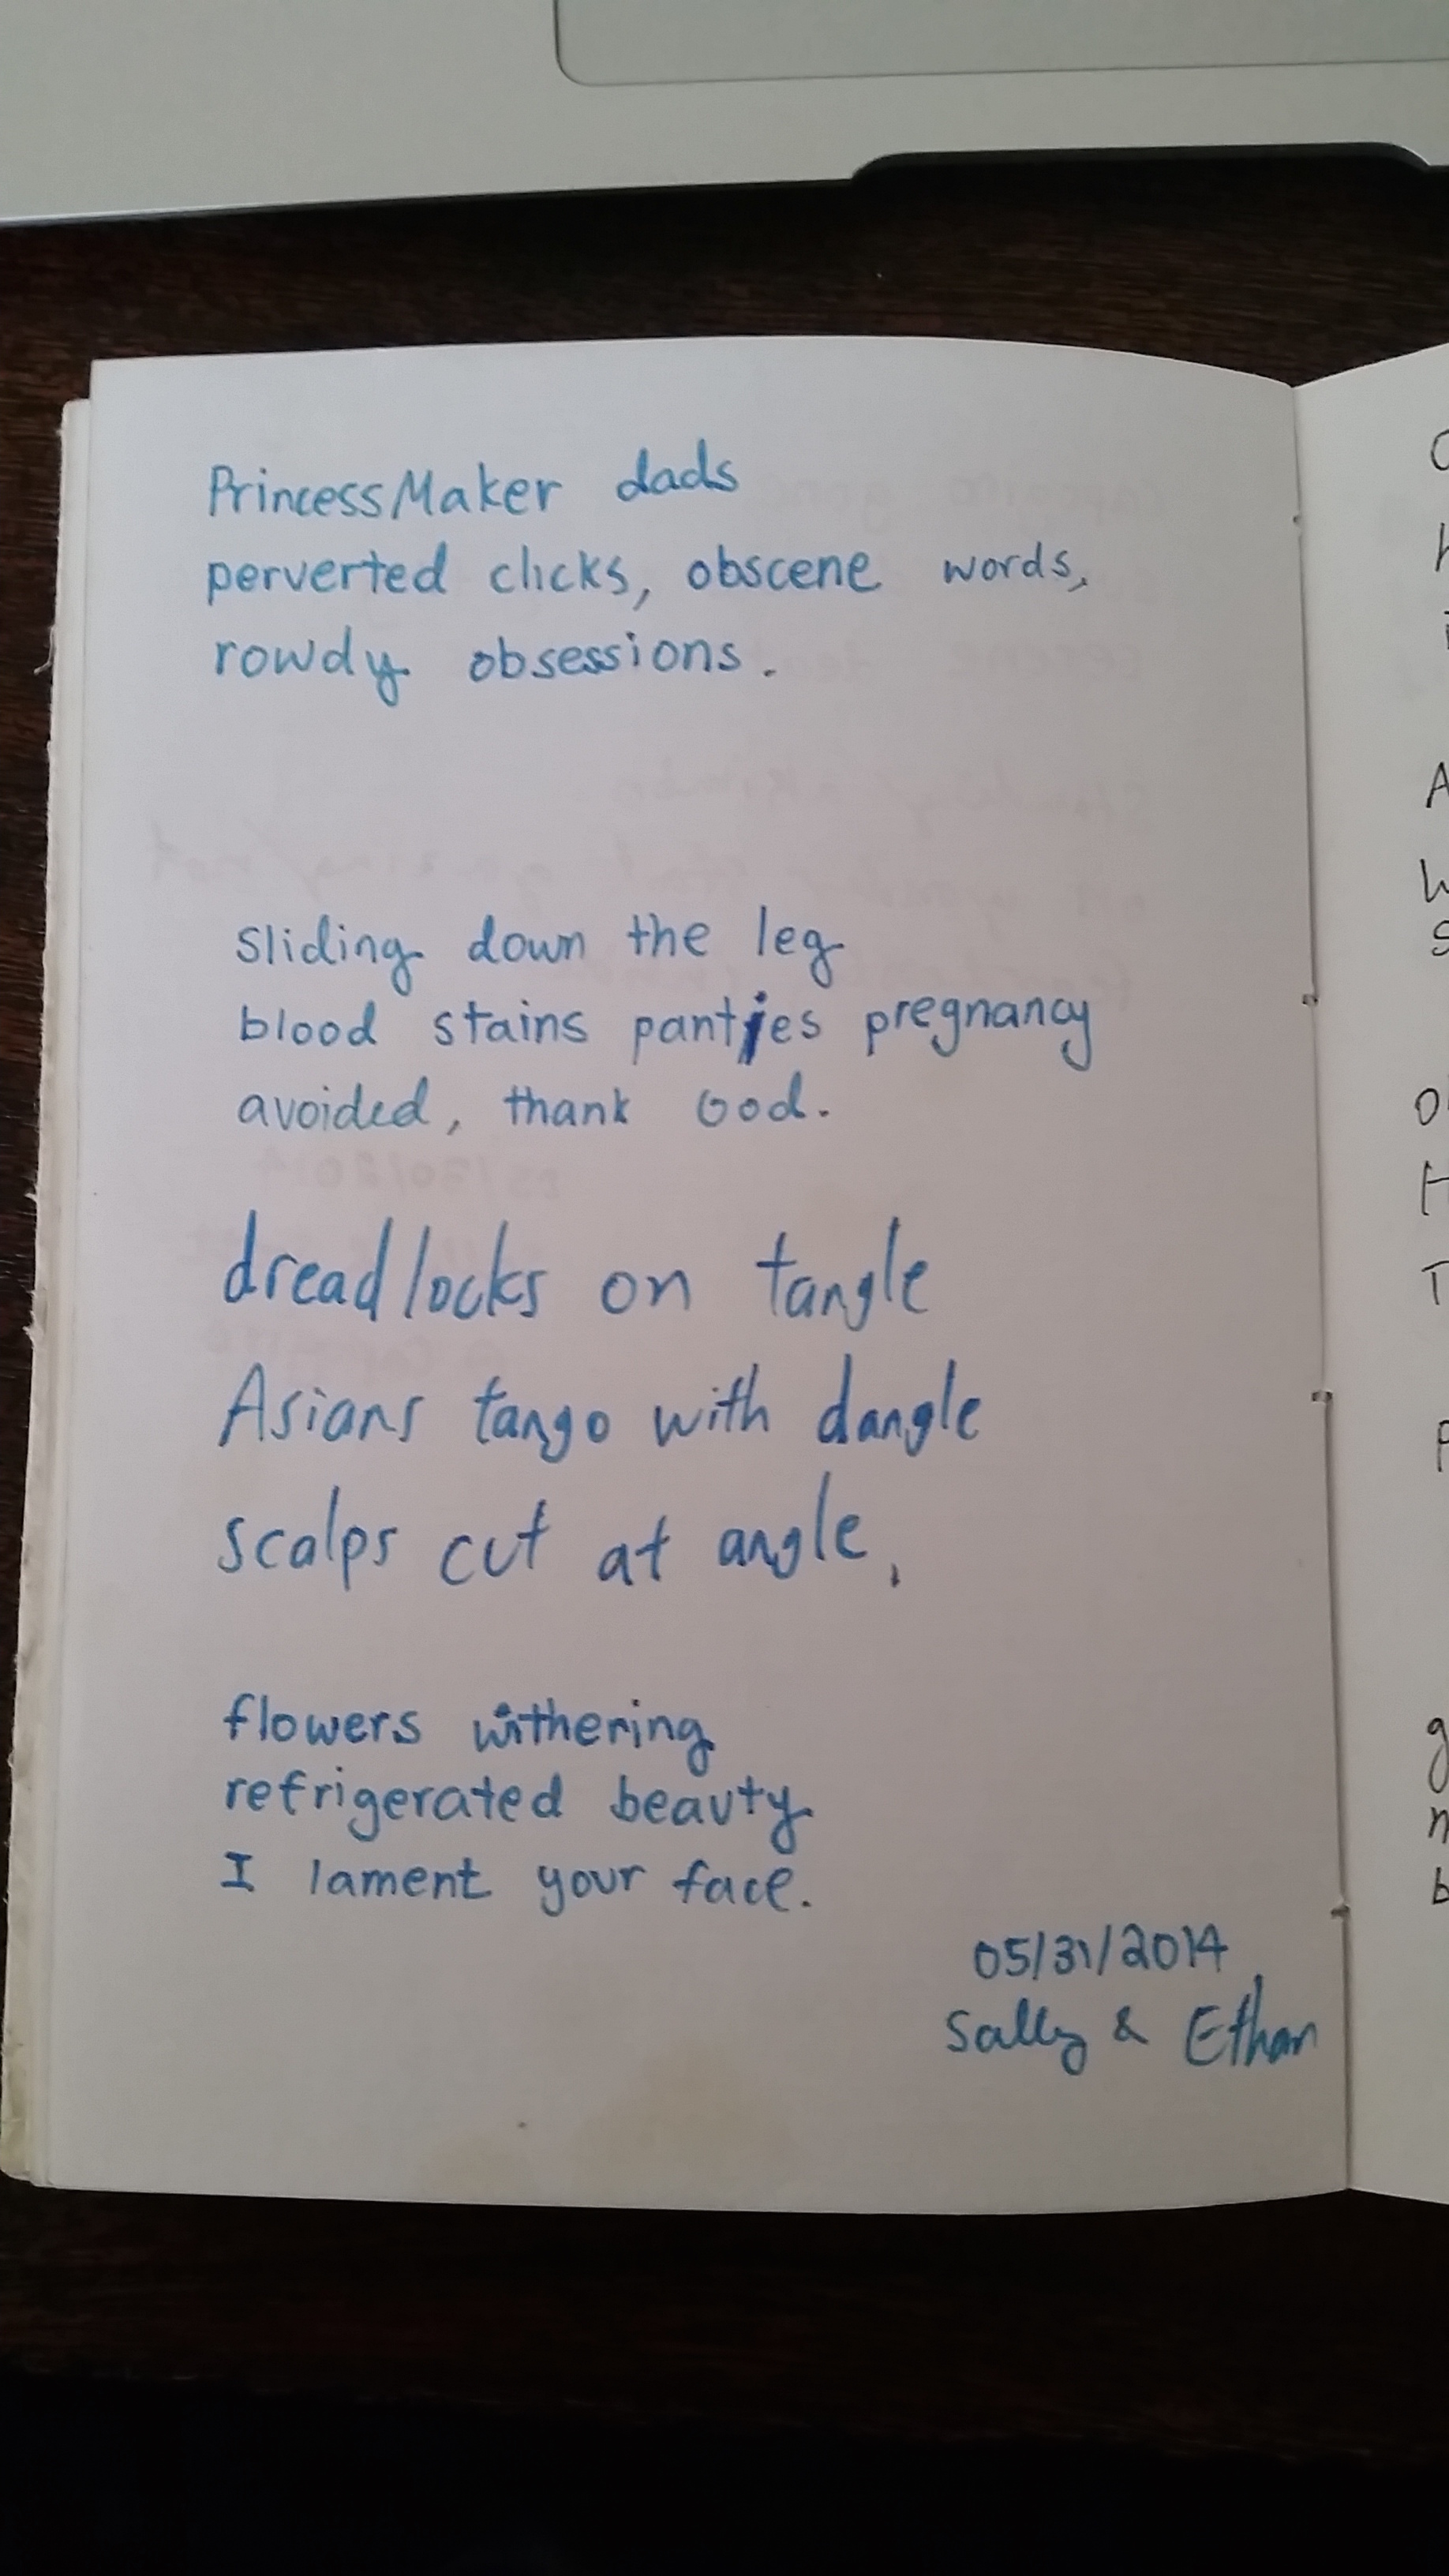 PrincessMaker dads
perverted clicks, obscene words,
rowdy obsessions.
sliding down the leg
blood stains panties pregnancy
avoided, thank God.
dreadlocks on tangle
Asians tango with dangle
scalps cut at angle.
flowers withering
refrigerated beauty
I lament your face.
05/31/2014
Sally & Ethan